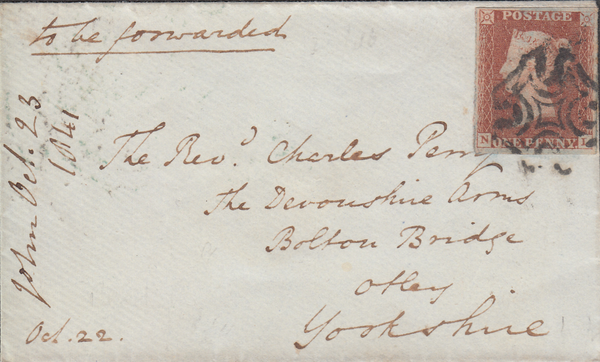 to be forwarded
POSTAGE
N
ONE PENNY
The Rev.ᵈ Charles Perry
the Devonshire Arms
Bolton Bridge
Otley
Yorkshire
John Oct. 23
1841
Oct. 22.